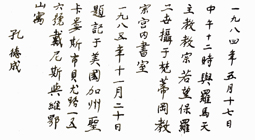 一九八四年五月十七日
中午十二時與羅馬天
主教教宗若望保羅
二世攝于梵蒂岡教
宗宮內書室
一九八五年十一月二十日
題記于美國加州聖
卡婁斯市貝尤路一五
六號戴尼斯典維鄂
山寓
孔德成